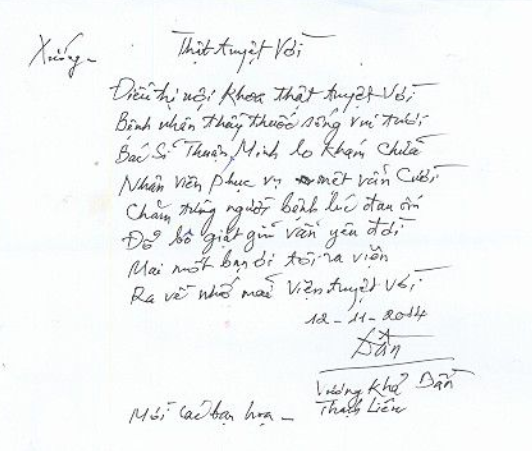 Xướng - Thật tuyệt Vời
Điều trị nội khoa thật tuyệt Vời
Bệnh nhân thầy thuốc sống vui tươi
Bác Sĩ Thuận, Minh lo khám chữa
Nhân viên phục vụ mệt vẫn Cười
Chăm từng người bệnh lúc đau ốm
Đỡ bô giặt giũ vẫn yêu đời
Mai mốt bạn ơi tôi ra viện
Ra về nhớ mãi Viện tuyệt Vời
12-11-2014
Dần
Vương Khả Dần
Thạch Liên
Mời các bạn hoạ -